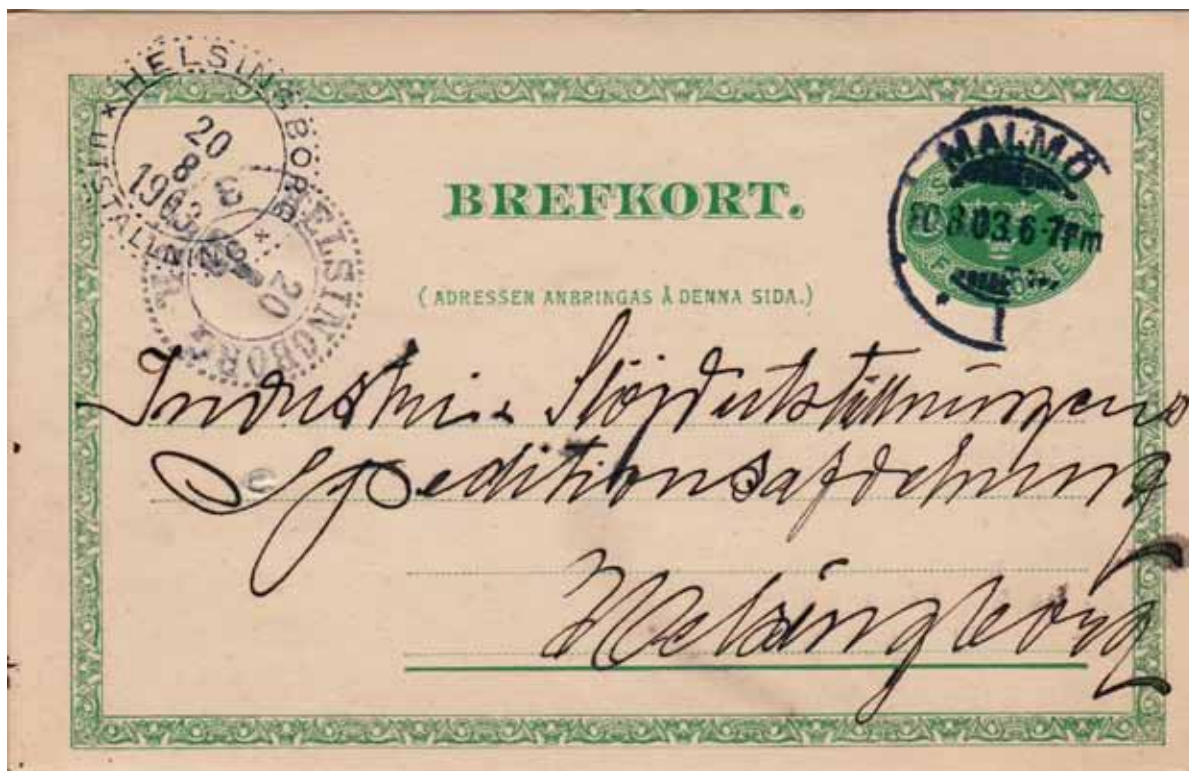 HELSINGBORG
UTSTÄLLNING
20
8
1903
HELSINGBORG
20
8
MALMÖ
20 8.03.6-7Fm
BREFKORT.
(ADRESSEN ANBRINGAS Å DENNA SIDA.)
Industri & Slöjdutställningens
Speditionsafdelning
Helsingborg